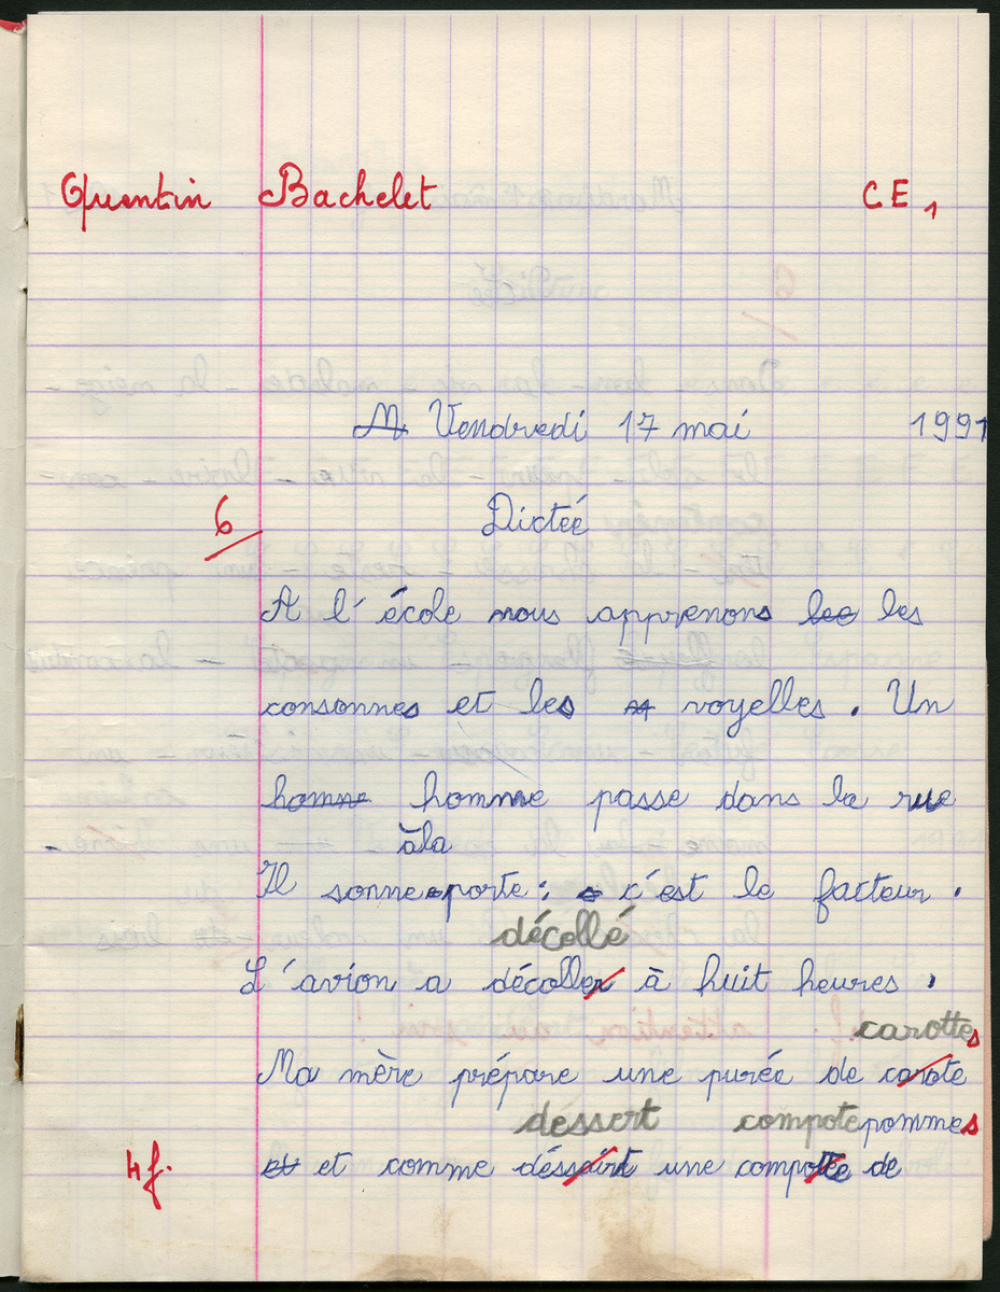 Quentin Bachelet CE1
M Vendredi 17 mai 1991
6 Dictée
A l'école nous apprenons les les
consonnes et les voyelles. Un
homne homme passe dans la rue
à la
Il sonne porte : c'est le facteur.
décollé
L'avion a décoller à huit heures.
carottes
Ma mère prépare une purée de carote
déssert compote pommes
4f. et et comme déssairt une compotte de